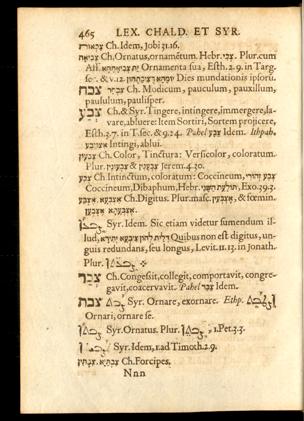 465 LEX. CHALD. ET SYR.
Ch. Idem, Jobi 31.16.
Ch. Ornatus, ornamētum. Hebr. צבי. Plur. cum
Aff. Ornamenta sua, Esth. 2.9. in Targ.
sec. & v. 12. Dies mundationis ipsorū.
צבחר Ch. Modicum, pauculum, pauxillum,
paululum, paulisper.
צבע Ch. & Syr. Tingere, intingere, immergere, la-
vare, abluere: Item Sortiri, Sortem projicere,
Esth. 3.7. in T. sec. & 9.24. Pahel צבע Idem. Ithpah.
אצטבע Intingi, ablui.
צבעין Ch. Color, Tinctura: Versicolor, coloratum.
Plur. צבעונין & צבעין Jerem. 4.30.
צבע Ch. Intinctum, coloratum: Coccineum,
Coccineum, Dibaphum, Hebr. תולעת השני, Exo. 39.3.
אצבע Ch. Digitus. Plur. masc. אצבעין, & fœmin.
אצבען
Syr. Idem. Sic etiam videtur sumendum il-
lud, Quibus non est digitus, un-
guis redundans, seu longus, Levit. 11.13. in Jonath.
Plur.
צבר Ch. Congessit, collegit, comportavit, congre-
gavit, coacervavit. Pahel צבר Idem.
צבת Syr. Ornare, exornare. Ethp.
Ornari, ornare se.
Syr. Ornatus. Plur. 1. Pet. 3.3.
Syr. Idem, 1. ad Timoth. 2.9.
Ch. Forcipes.
Nnn